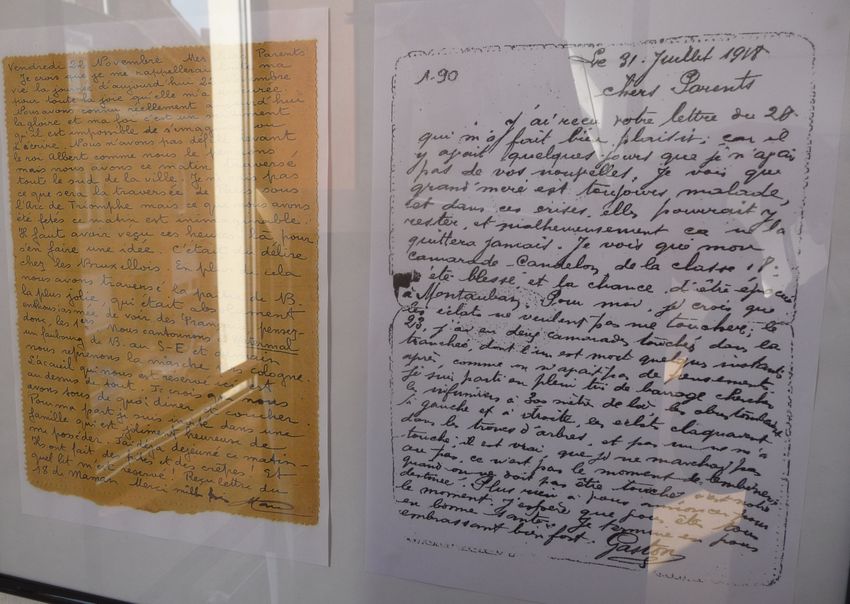 Vendredi 22 Novembre Mes Parents
Je crois que je me rappellerai ma
vie la journée d'aujourd'hui 22
pour toute la joie qu'elle m'a
Nous avons connu réellement aujourd'hui
la gloire et ma foi c'est un
qu'il est impossible de s'imag
l'écrire. Nous n'avons pas défilé devant
le roi Albert comme nous le
mais nous avons ce matin traversé
tout le sud de la ville. Je pas
ce que sera la traversée de sous
l'Arc de Triomphe mais ce que nous avons
été fêtés ce matin est inim
Il faut avoir veçu ces heures là pour
s'en faire une idée. C'éta délire
chez les Bruxellois. En pl cela
nous avons traversé la partie de B.
la plus jolie, qui était abs ment
enthousiasmée de voir des Franç pensez-
donc les pers Nous cantonnons à
un faubourg de B. au S-E et
nous reprenons la marche Cologne.
L'accueil qui nous est réservé ici est
au dessus de tout. Je crois que nous
avons tous de quoi dîner et coucher
Pour ma part je suis dans une
famille qui est heureuse de
me posséder. J'ai déjà déjeuné ce matin
Ils ont fait des et des crêpes! Et
quel lit m'est réservé! Reçu lettre du
18 de Maman Merci mille fois
Le 31 Juillet 1918
A-90
Chers Parents
J'ai reçu votre lettre du 28
qui m'a fait bien plaisir; car il
y avait quelques jours que je n'avais
pas de vos nouvelles, Je vois que
grand'mère est toujours malade,
et dans ces crises, elle pourrait y
rester, et malheureusement ça ne la
quittera jamais. Je vois que mon
camarade Candelon de la classe 18
été blessé et la chance d'être évacué
à Montauban. Pour moi, je crois que
les éclats ne veulent pas me toucher; le
23, j'ai eu deux camarades touchés dans la
tranchée dont l'un est mort quelques instants
après, comme on n'avait pas de pansement
Je suis parti en plein tir de barrage chercher
les infirmiers à 300 mètres de là; les obus tombaient
à gauche et à droite, les éclats claquaient
dans les troncs d'arbres, et pas un ne m'a
touché; il est vrai, que je ne marchais pas
au pas, ce n'est pas le moment de
quand on ne doit pas être touché
destinée. Plus rien à vous annoncer pour
le moment, j'espère que vous êtes tous
en bonne santé. Je termine en vous
embrassant bien fort. Gaston